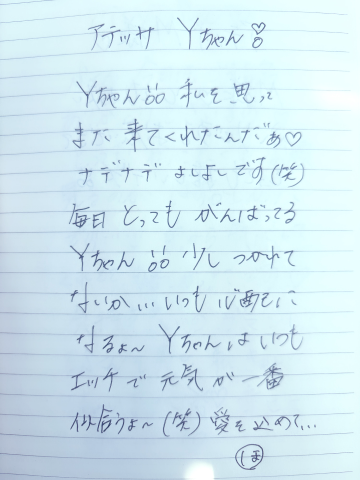 アテッサ Yちゃん♡
Yちゃん!! 私を思って
また来てくれたんだぁ♡
ナデナデ よしよしです(笑)
毎日 とっても がんばってる
Yちゃん!! 少し つかれて
ないか… いつも 心配に
なるょ〜 Yちゃんは いつも
エッチで 元気が 一番
似合うょ〜(笑) 愛を込めて…
しほ